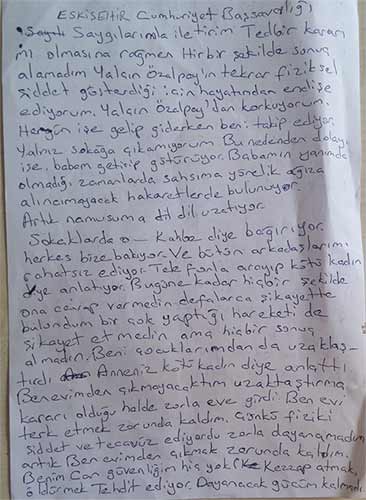 ESKİSEHİR Cumhuriyet Başsavcılığı
Saygılarımla iletirim Tedbir kararı
mı olmasına rağmen Hirbir şekilde sonuç
alamadım Yalçın Özalpay'ın tekrar fiziksel
şiddet gösterdiği için hayatından endişe
ediyorum. Yalçın Özalpay'dan korkuyorum.
Hergün işe gelip giderken beni takip ediyor
Yalnız sokağa çıkamıyorum Bu nedenden dolayı
işe babam getirip götürüyor. Babamın yanımda
olmadığı zamanlarda şahsıma yönelik ağıza
alınmayacak hakaretlerde bulunuyor.
Artık namusuma dil dil uzatıyor.
Sokaklarda o- Kahbe diye bağırıyor.
herkes bize bakıyor. Ve bütün arkadaşlarımı
rahatsız ediyor. Telefonla arayıp kötü kadın
diye anlatıyor. Bugüne kadar hiçbir şekilde
ona cevap vermedim defalarca şikayette
bulundum bir çok yaptığı hareketi de
şikayet etmedim ama hiçbir sonuç
almadım. Beni çocuklarımdan da uzaklaş-
tırdı Anneniz kötü kadın diye anlattı
Ben evimden çıkmayacaktım uzaklaştırma
kararı olduğu halde zorla eve girdi Ben evi
terk etmek zorunda kaldım. Çünkü fiziki
şiddet ve tecavüz ediyordu zorla dayanamadım
artık Ben evimden çıkmak zorunda kaldım.
Benim Can güvenliğim hiç yok Kezzap atmak,
öldürmek Tehdit ediyor. Dayanacak gücüm kalmadı